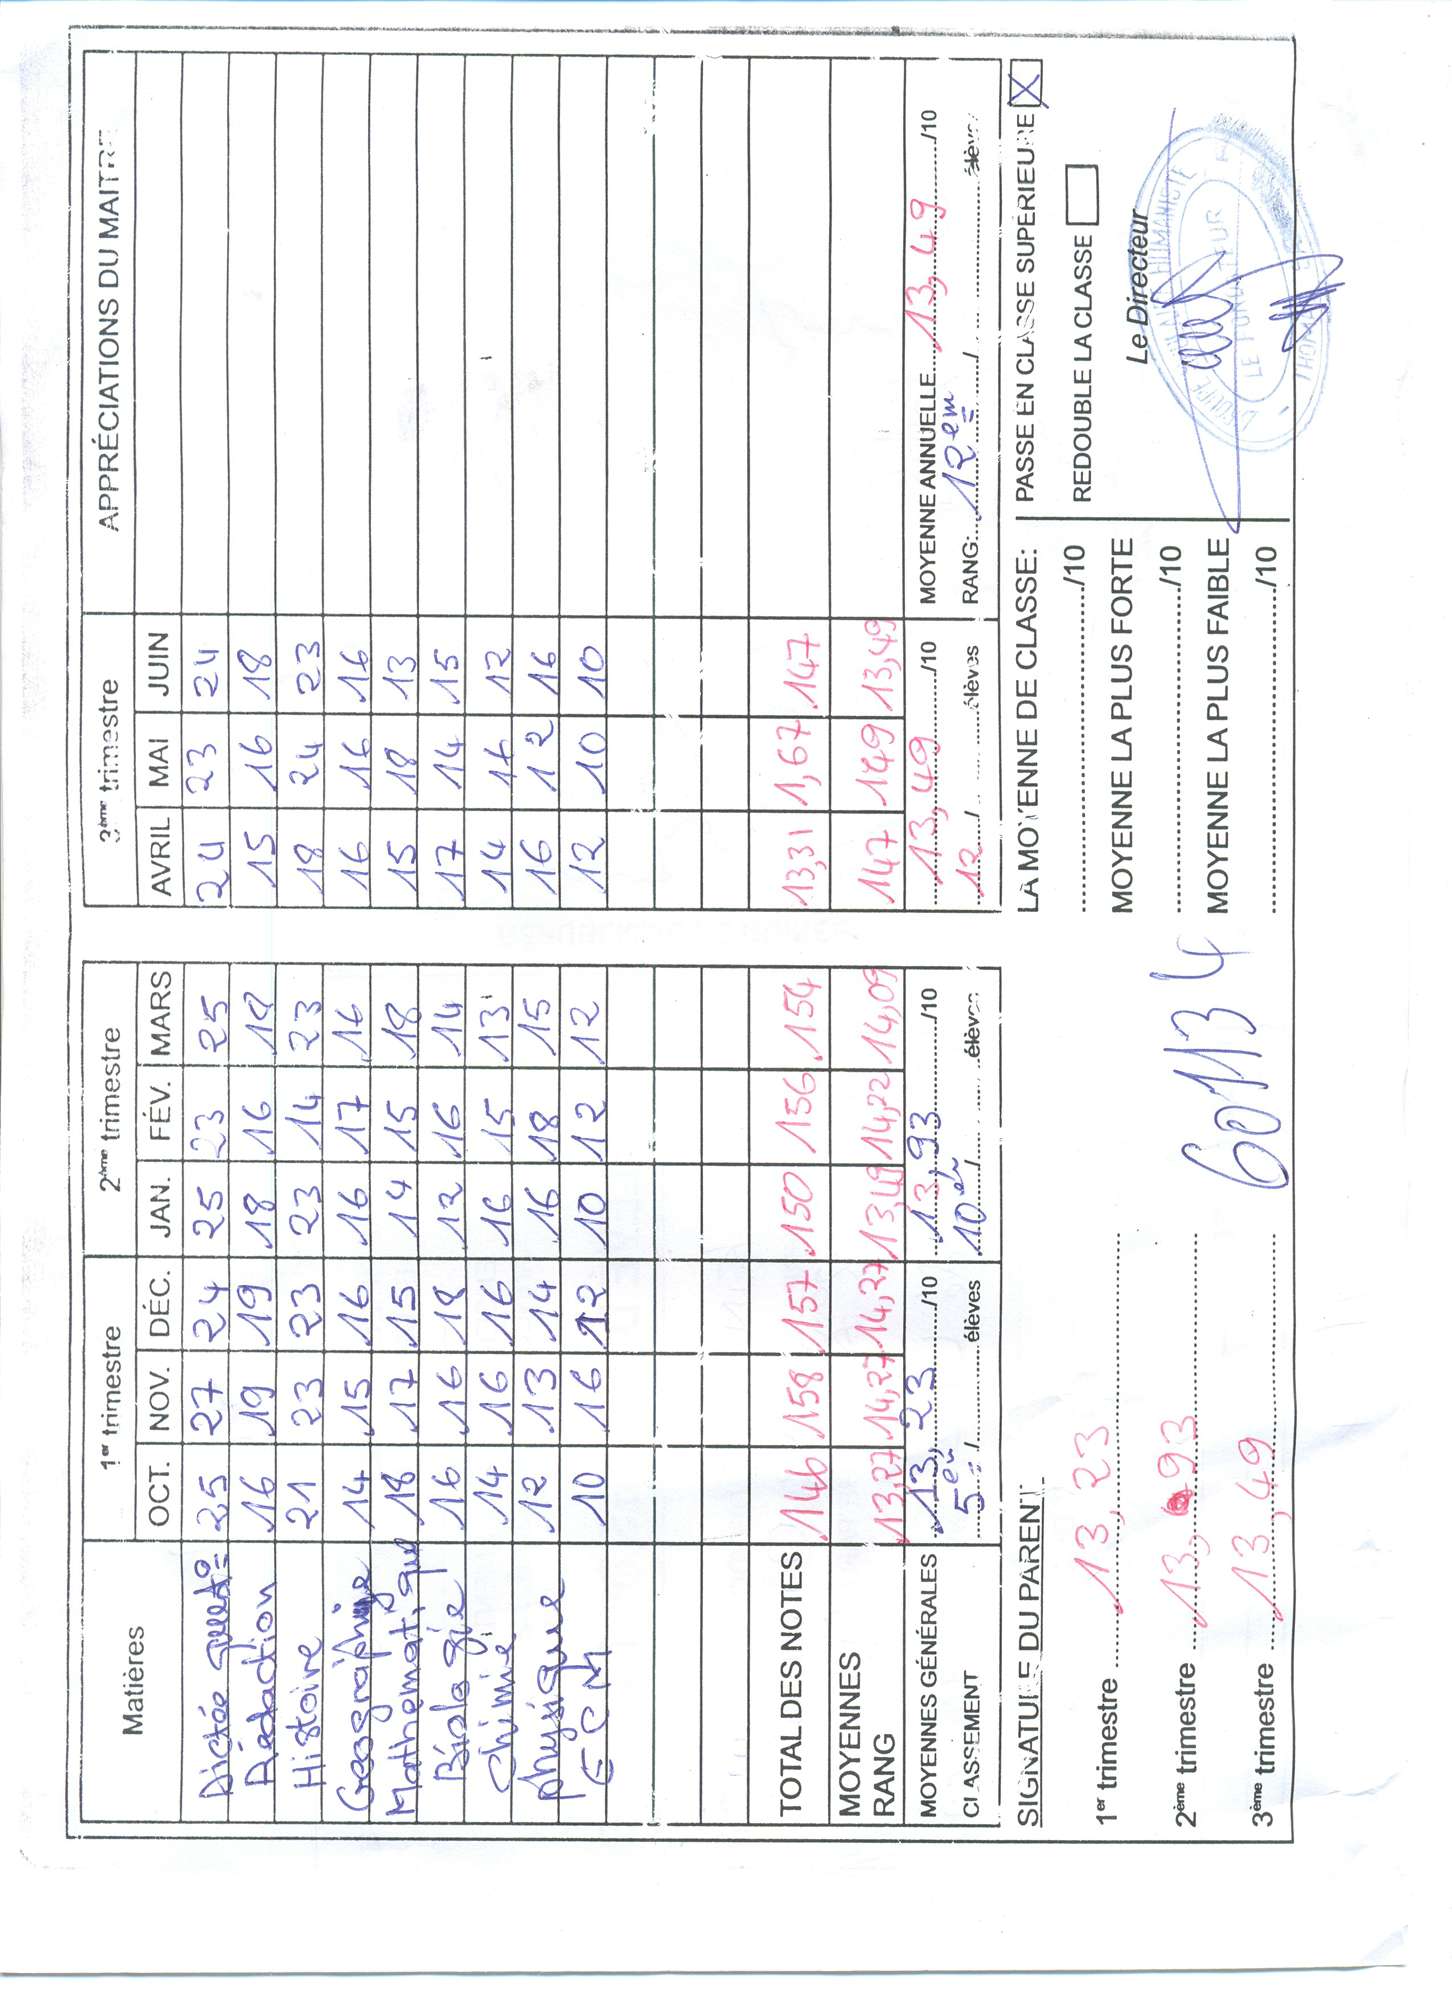 Matières 1er trimestre 2ème trimestre 3ème trimestre APPRÉCIATIONS DU MAITRE
OCT. NOV. DÉC. JAN. FÉV. MARS AVRIL MAI JUIN
Dictée 25 27 24 25 23 25 24 23 24
Rédaction 16 19 19 18 16 18 15 16 18
Histoire 21 23 23 23 14 23 18 24 23
Geographie 14 15 16 16 17 16 16 16 16
Mathematique 18 17 15 14 15 18 15 18 13
Biologie 16 16 18 12 16 14 17 14 15
chimie 14 16 16 16 15 13 14 16 12
physique 12 13 14 16 18 15 16 12 16
ECM 10 16 12 10 12 12 12 10 10
TOTAL DES NOTES 146 158 157 150 156 154 13,31 1,67 147
MOYENNES RANG 13,27 14,27 14,27 13,49 14,22 14,09 147 149 13,49
MOYENNES GÉNÉRALES 13,23 /10 13,93 /10 13,49 /10 MOYENNE ANNUELLE 13,49 /10
CLASSEMENT 5em / élèves 10em / élèves 12 / élèves RANG: 12em / élèves
SIGNATURE DU PARENT
1er trimestre 13,23
2ème trimestre 13,93
3ème trimestre 13,49
60113 4
LA MOYENNE DE CLASSE:
/10
MOYENNE LA PLUS FORTE
/10
MOYENNE LA PLUS FAIBLE
/10
PASSE EN CLASSE SUPÉRIEURE X
REDOUBLE LA CLASSE
Le Directeur
HUMANISTE